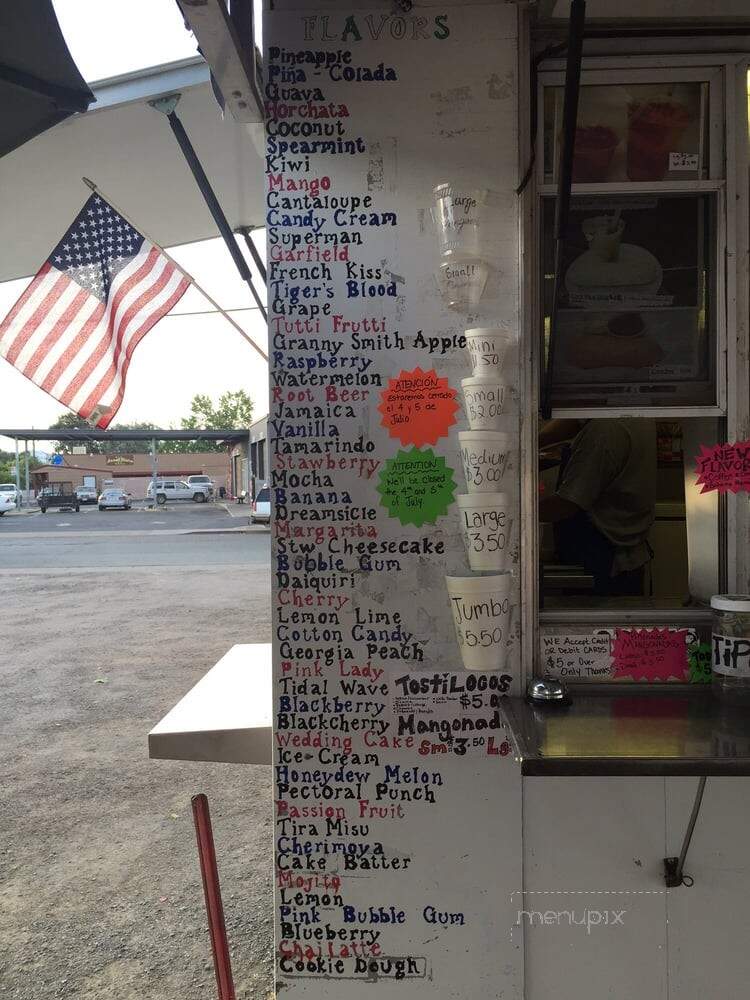 FLAVORS
Pineapple
Piña - Colada
Guava
Horchata
Coconut
Spearmint
Kiwi
Mango
Cantaloupe
Candy Cream
Superman
Garfield
French Kiss
Tiger's Blood
Grape
Tutti Frutti
Granny Smith Apple
Raspberry
Watermelon
Root Beer
Jamaica
Vanilla
Tamarindo
Stawberry
Mocha
Banana
Dreamsicle
Margarita
Stw Cheesecake
Bubble Gum
Daiquiri
Cherry
Lemon Lime
Cotton Candy
Georgia Peach
Pink Lady
Tidal Wave
Blackberry
Blackcherry
Wedding Cake
Ice-Cream
Honeydew Melon
Pectoral Punch
Passion Fruit
Tira Misu
Cherimoya
Cake Batter
Mojito
Lemon
Pink Bubble Gum
Blueberry
Chai Latte
Cookie Dough
Large
Small
Mini
$1.50
Small
$2.00
Medium
$3.00
Large
$3.50
Jumbo
$5.50
ATENCION
Estaremos cerrado
el 4 y 5 de
Julio.
ATTENTION
We'll be closed
the 4th and 5th
of July.
TostiLocos
$5.0
Mangonad
Sm $3.50 Lg
NEW
FLAVO
WE Accept Credit
OR Debit CARDS
$5 or Over
Only Thanks
MANGONADAS
TiP
menupix